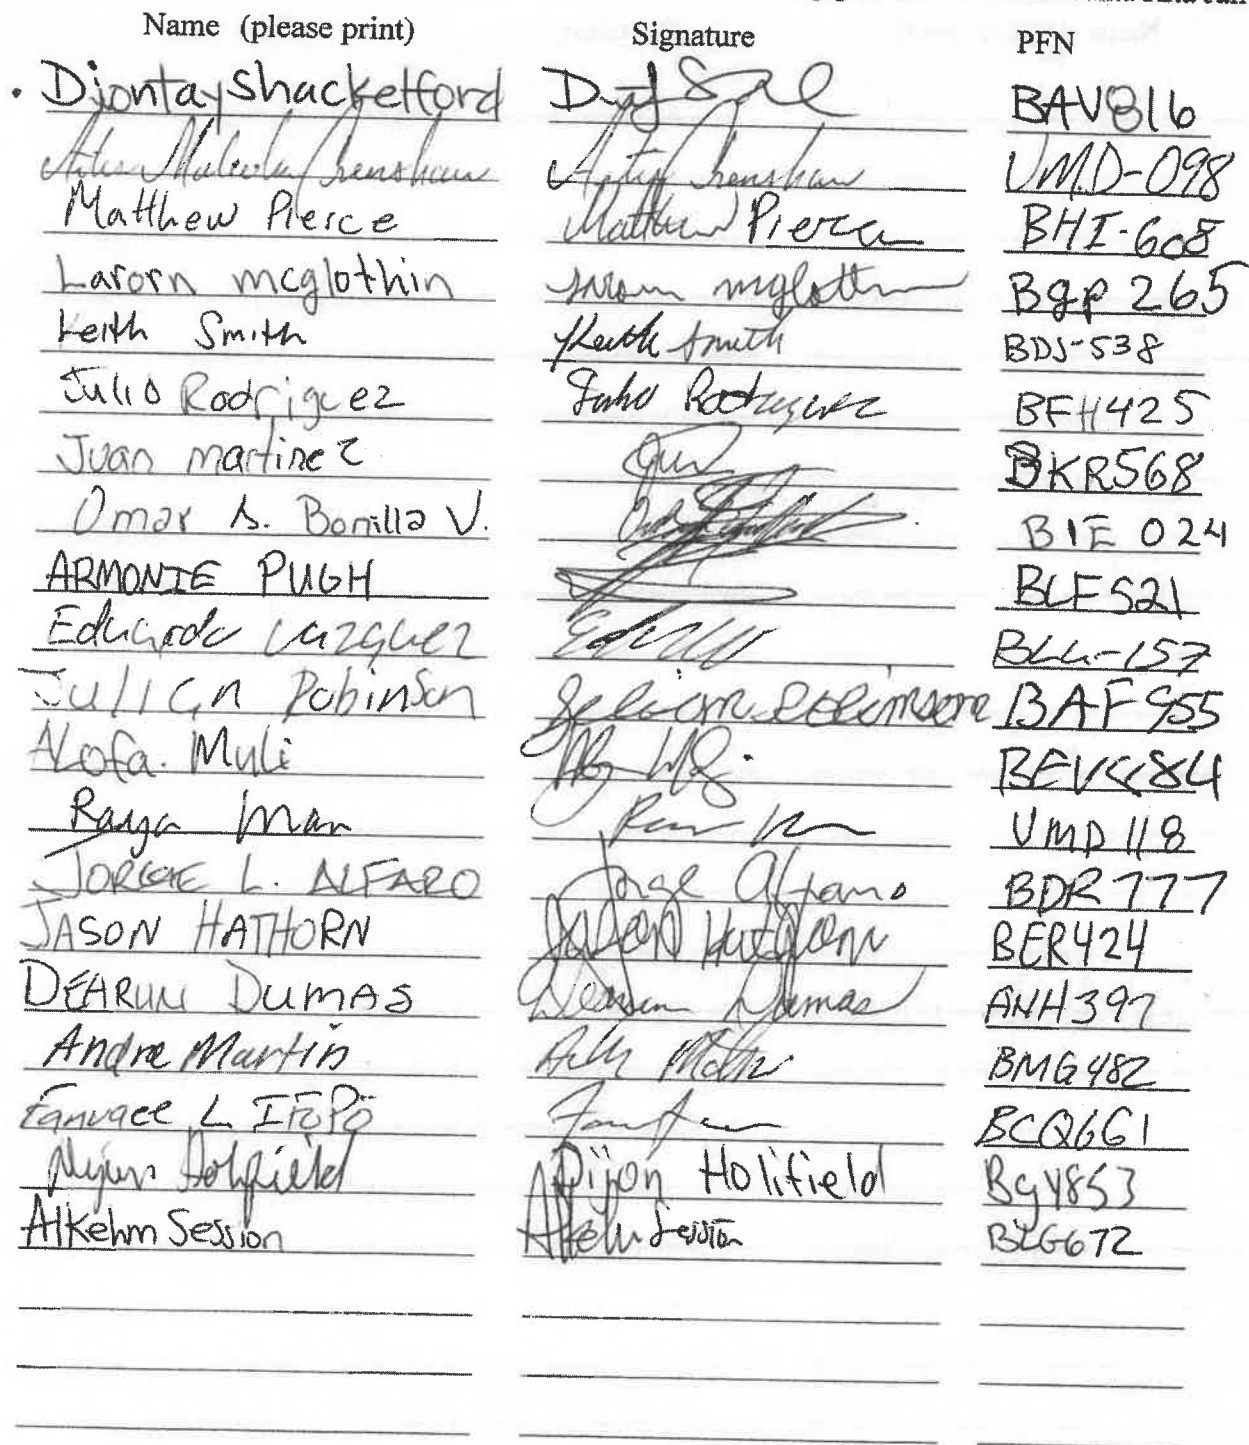 Name (please print) Signature PFN
Diontay Shackelford BAV816
Malcolm Crenshaw Crenshaw UMD-098
Matthew Pierce Matthew Pierce BHI-608
Larorn mcglothin BGP 265
Keith Smith Keith Smith BDJ-538
Julio Rodriguez Julio Rodriguez BFH425
Juan martinez BKR568
Omar S. Bonilla V. BIE 024
ARMONIE PUGH BLF521
Eduardo Vazquez 157
Julian Robinson Robinson BAF955
Alofa. Muli
Raya Man UMD 118
JORGE L. ALFARO Jorge Alfaro BDR777
JASON HATHORN Jason Hathorn BER424
DEARUN DUMAS Dumas ANH397
Andre Martin BMG482
L. BCQ661
Holifield Dijon Holifield BGY853
Alkehm Session Session